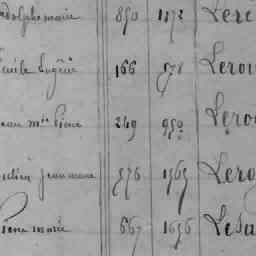 adolphe marie 850 1172 Lero
Emile Eugène 166 578 Lerou
Jean mie Pierre 249 950 Lero
Julien jean marie 576 1565 Leroy
Pierre marie 667 1656 Lesa